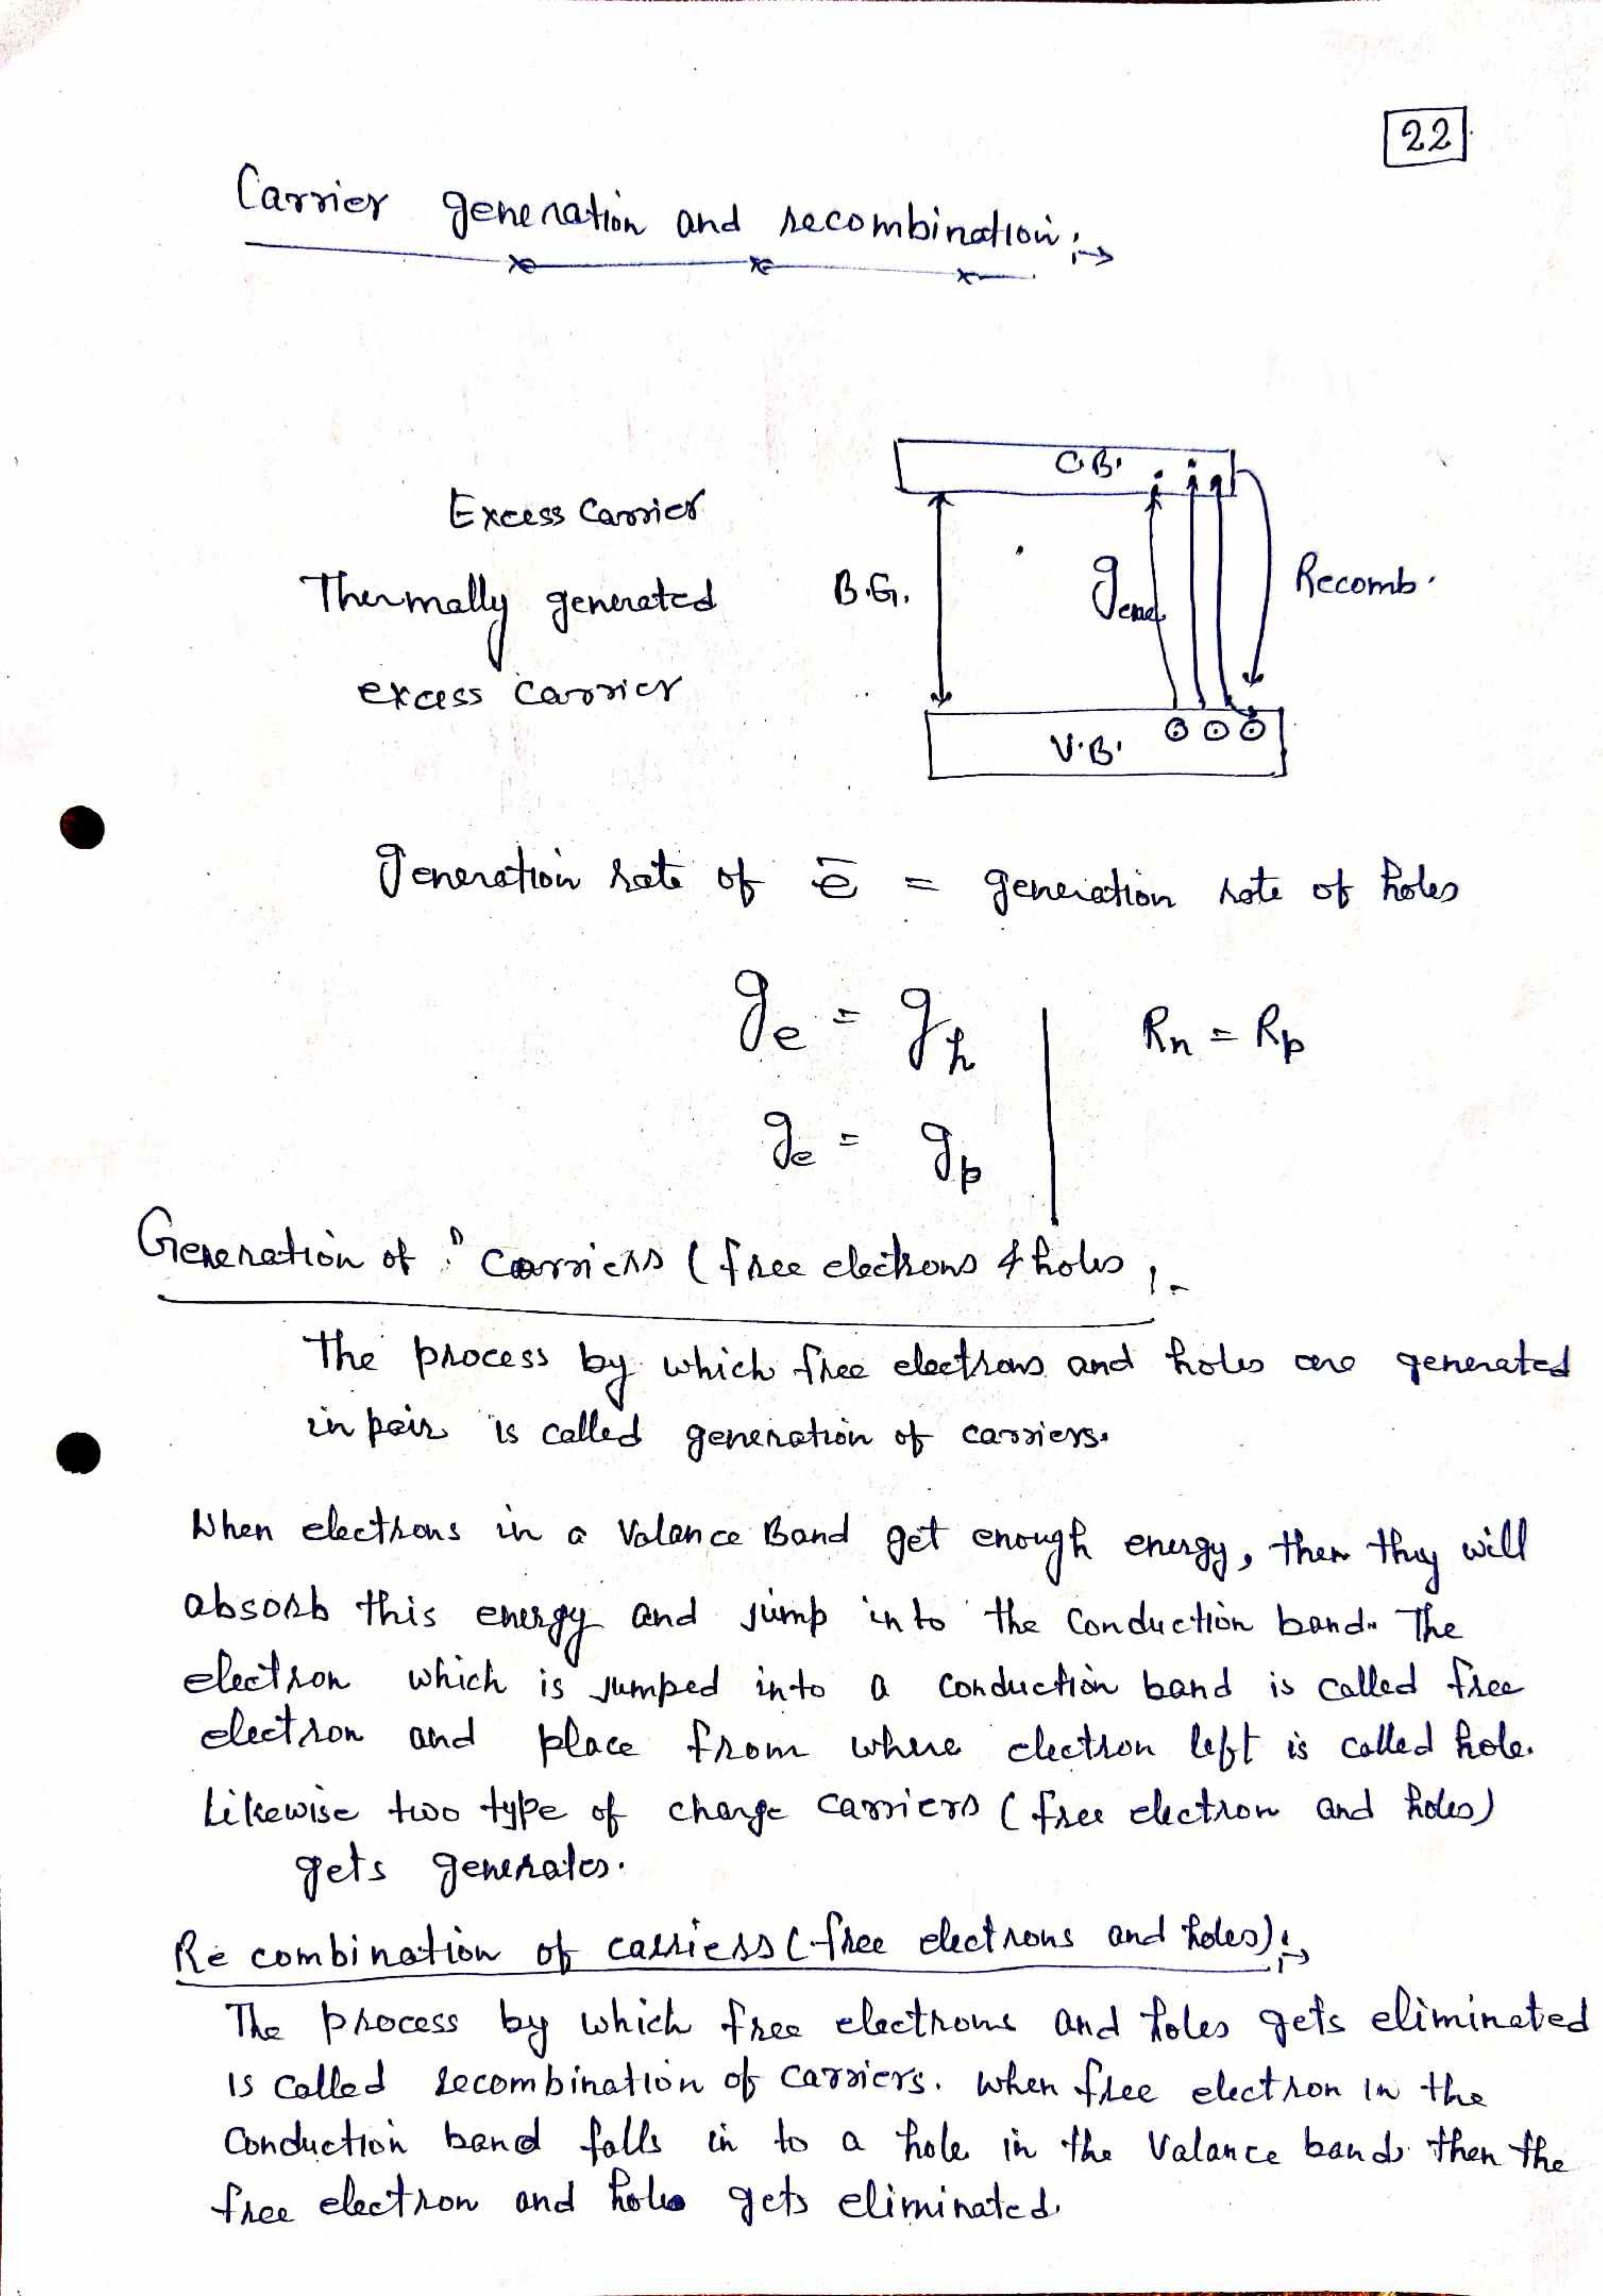 22
Carrier generation and recombination :→
C.B.
Excess Carrier
Thermally generated
excess carrier
B.G.
Recomb.
V.B.
Generation rate of ē = generation rate of holes
ge = gh
Rn = Rp
ge = gp
Generation of carriers (free electrons & holes :-
The process by which free electrons and holes are generated
in pair is called generation of carriers.
When electrons in a Valance Band get enough energy, then they will
absorb this energy and jump into the Conduction band. The
electron which is jumped into a conduction band is called free
electron and place from where electron left is called hole.
Likewise two type of charge carriers (free electron and holes)
gets generates.
Re combination of carriers (free electrons and holes) :→
The process by which free electrons and holes gets eliminated
is called recombination of carriers. When free electron in the
Conduction band falls in to a hole in the Valance band. then the
free electron and hole gets eliminated.